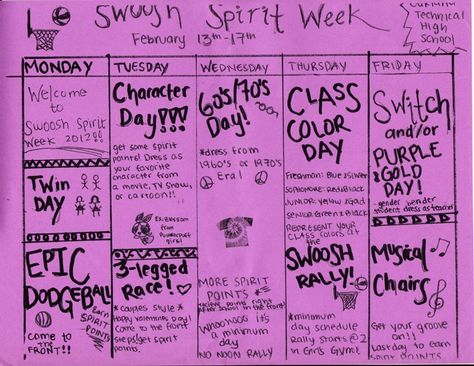 Swoosh Spirit Week
February 13th-17th
Technical
High
School
MONDAY
Welcome
to
Swoosh Spirit
Week 2012!!!
Twin
DAY
EPIC
DODGEBALL
come to
the
FRONT!!
earn
SPIRIT
POINTS
TUESDAY
Character
Day!!!
get some spirit
points! Dress as
your favorite
character from
a movie, TV show,
or cartoon!!
Ex: Blossom
from
Powerpuff
girls!
3-legged
Race!
*couples style*
Happy Valentines Day!
Come to the front
steps! get spirit
points.
WEDNESDAY
60's/70's
Day!
*dress from
1960's or 1970's
Era!
MORE SPIRIT
POINTS
it's
a minimum
day
NO NOON RALLY
THURSDAY
CLASS
COLOR
DAY
Freshman: Blue &
Sophomore: Red & Black
Junior: Yellow &
Senior: Green & Black
REPRESENT your
CLASS COLORS at
the
SWOOSH
RALLY!
*minimum
day schedule
Rally starts @2
in Girls Gym
FRIDAY
Switch
and/or
PURPLE
& GOLD
DAY!
-gender bender
student dress as teacher
Musical
Chairs
Get your groove
on!!
Last day to earn
Spirit points!